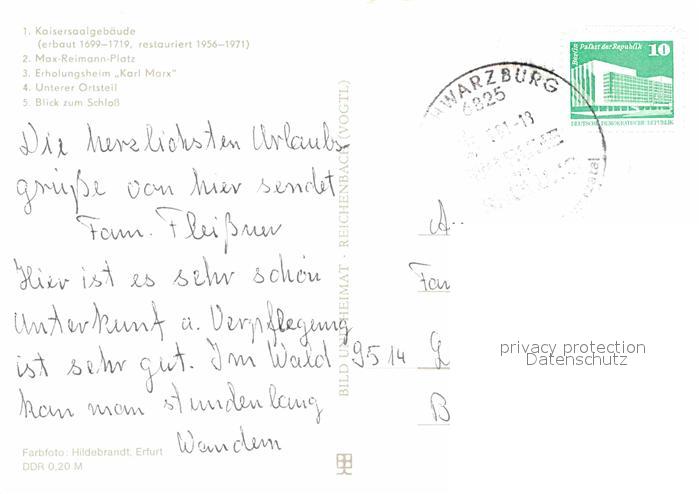 1. Kaisersaalgebäude
(erbaut 1699–1719, restauriert 1956–1971)
2. Max-Reimann-Platz
3. Erholungsheim „Karl Marx"
4. Unterer Ortsteil
5. Blick zum Schloß
Die herzlichsten Urlaubs-
grüße von hier sendet
Fam. Fleißner
Hier ist es sehr schön
Unterkunft u. Verpflegung
ist sehr gut. Im Wald
kan man stundenlang
Wandern
Farbfoto: Hildebrandt, Erfurt
DDR 0,20 M
BILD UND HEIMAT · REICHENBACH (VOGTL)
WARZBURG
6825
Berlin Palast der Republik
10
DEUTSCHE DEMOKRATISCHE REPUBLIK
A
Fam
9514
B
privacy protection
Datenschutz